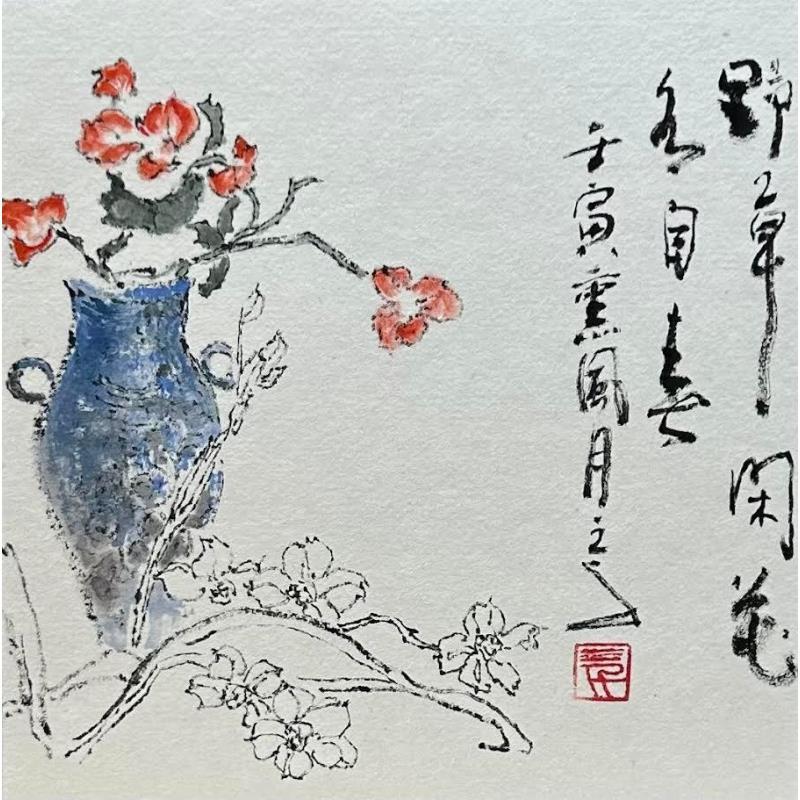 野草闲花
各自春
壬寅熏風月之